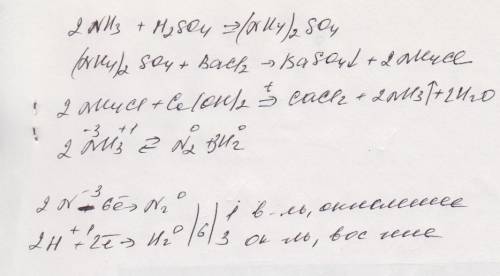 2NH₃ + H₂SO₄ ⇒ (NH₄)₂SO₄
(NH₄)₂SO₄ + BaCl₂ → BaSO₄↓ + 2NH₄Cl
2NH₄Cl + Ca(OH)₂ =t⇒ CaCl₂ + 2NH₃↑ + 2H₂O
2N⁻³H₃⁺¹ ⇄ N₂⁰ + 3H₂⁰
2N⁻³ - 6ē → N₂⁰ | | 1 в-ль, окисление
2H⁺¹ + 2ē → H₂⁰ | 6 | 3 ок-ль, вос-ние